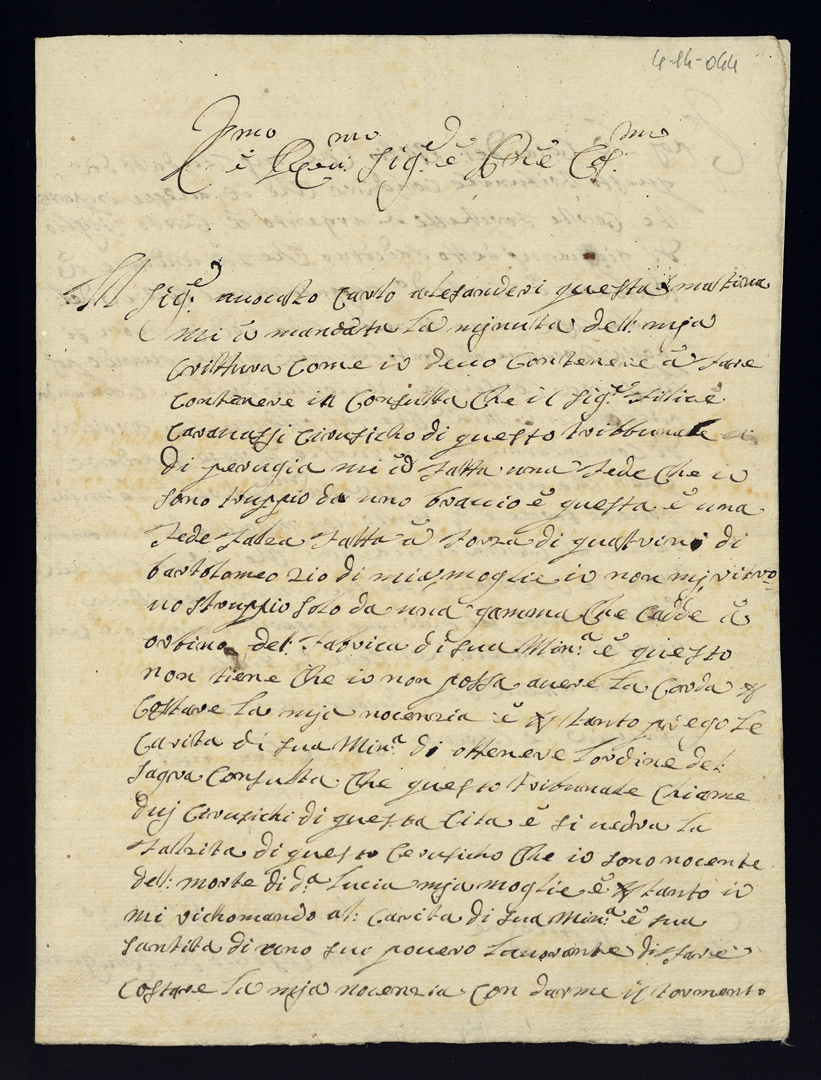 4-14-044
Jmo è Reumo Sigre è Prõe Colmo
Il Sigre auocato Carlo alesanderi questa matina
mi à mandata la mjnuta dell: mja
Crittura Come io deuo Contenere à fare
Contenere in Consulta Che il Sigre filice
Cauanassi Cirusicho di questo tribbunale
di perugia mi à fatta una fede Che io
sono truppio da uno braccio è questa è una
fede falza fatta à forza di quatrini di
bartolomeo zio di mia moglie io non mj ritro
uo struppio solo da una gamma Che Cadde à
orbino del: fabrica di sua Minza è questo
non tiene Che io non possa auere la Corda
Costare la mja nocenzia è tanto priego le
Carita di sua Minza di ottenere lordine del:
sagra Consulta Che questo tribunale Chiame
duj Cirusichi di questa Cita è si uedra la
falzita di questo Cerusicho Che io sono nocente
dell: morte di da Lucia mja moglie è tanto io
mi richomando al: Carita di sua Minza è sua
santita di uno suo pouero lauorante di fare
Costare la mja nocenzia Con darme il tormento